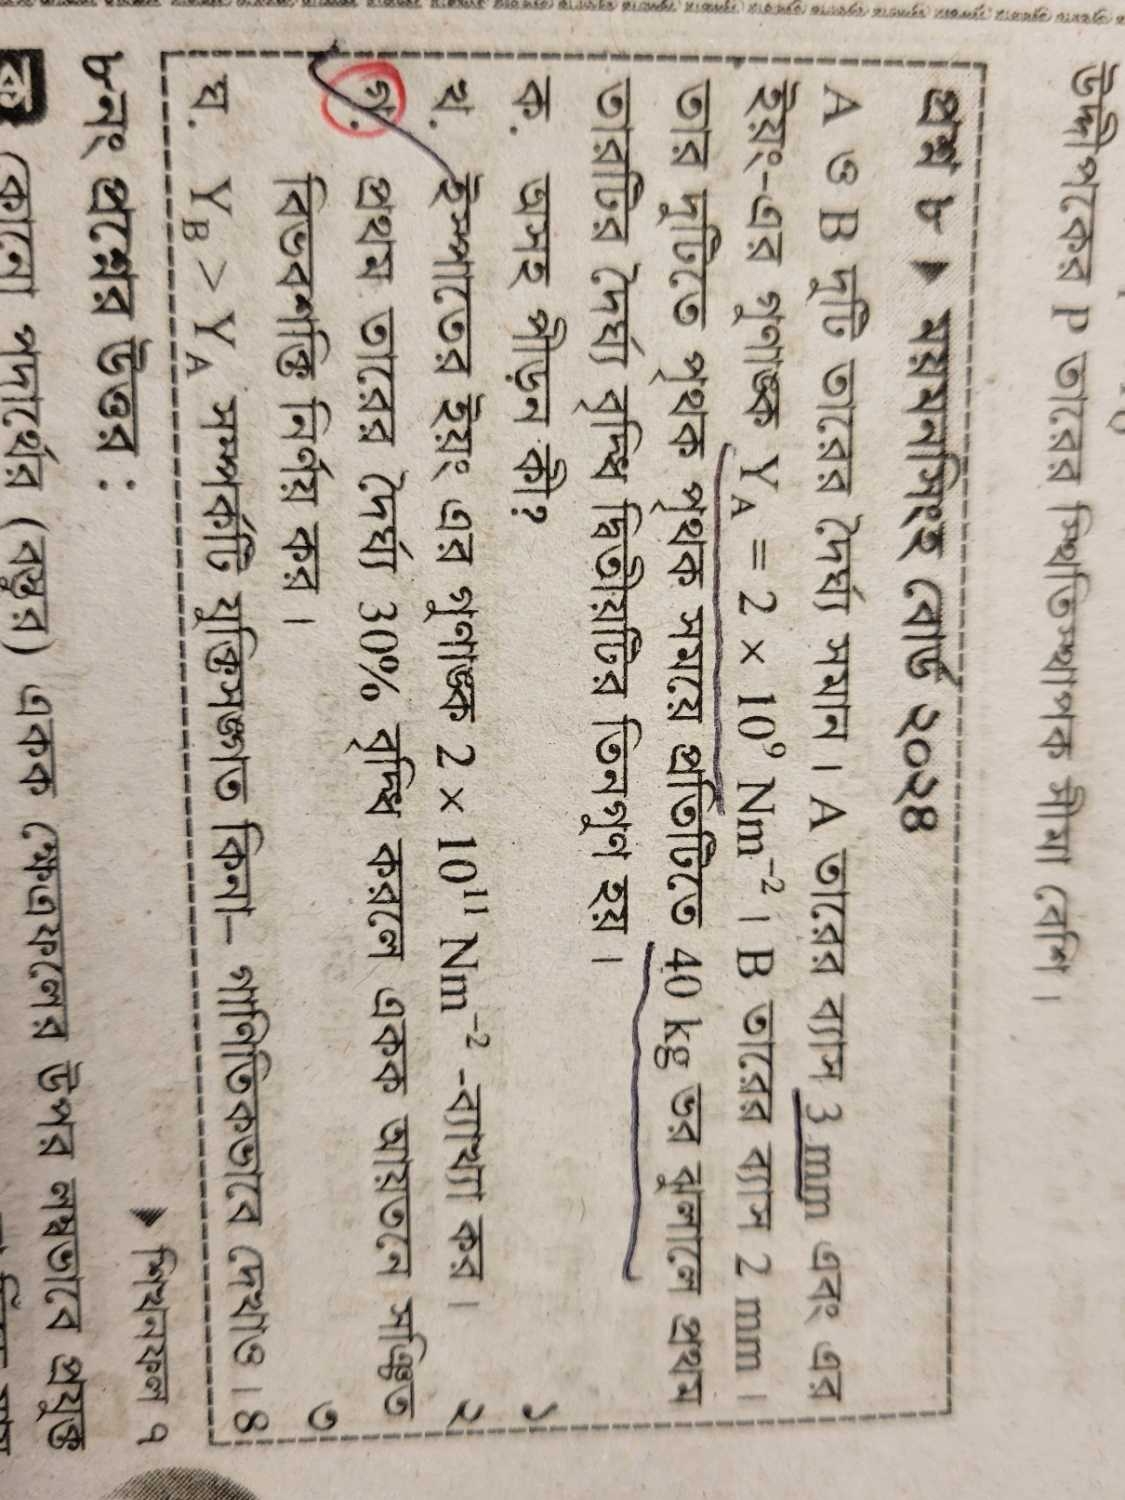 উদ্দীপকের P তারের স্থিতিস্থাপক সীমা বেশি।
প্রশ্ন ৮ ▶ ময়মনসিংহ বোর্ড ২০২৪
A ও B দুটি তারের দৈর্ঘ্য সমান। A তারের ব্যাস 3 mm এবং এর
ইয়ং-এর গুণাঙ্ক Y_A = 2 × 10⁹ Nm⁻²। B তারের ব্যাস 2 mm।
তার দুটিতে পৃথক পৃথক সময়ে প্রতিটিতে 40 kg ভর ঝুলালে প্রথম
তারটির দৈর্ঘ্য বৃদ্ধি দ্বিতীয়টির তিনগুণ হয়।
ক. অসহ পীড়ন কী? ১
খ. ইস্পাতের ইয়ং এর গুণাঙ্ক 2 × 10¹¹ Nm⁻² –ব্যাখ্যা কর। ২
গ. প্রথম তারের দৈর্ঘ্য 30% বৃদ্ধি করলে একক আয়তনে সঞ্চিত
বিভবশক্তি নির্ণয় কর। ৩
ঘ. Y_B > Y_A সম্পর্কটি যুক্তিসঙ্গত কিনা– গাণিতিকভাবে দেখাও। ৪
▶ শিখনফল ৭
৮নং প্রশ্নের উত্তর :
ক কোনো পদার্থের (বস্তুর) একক ক্ষেত্রফলের উপর লম্বভাবে প্রযুক্ত